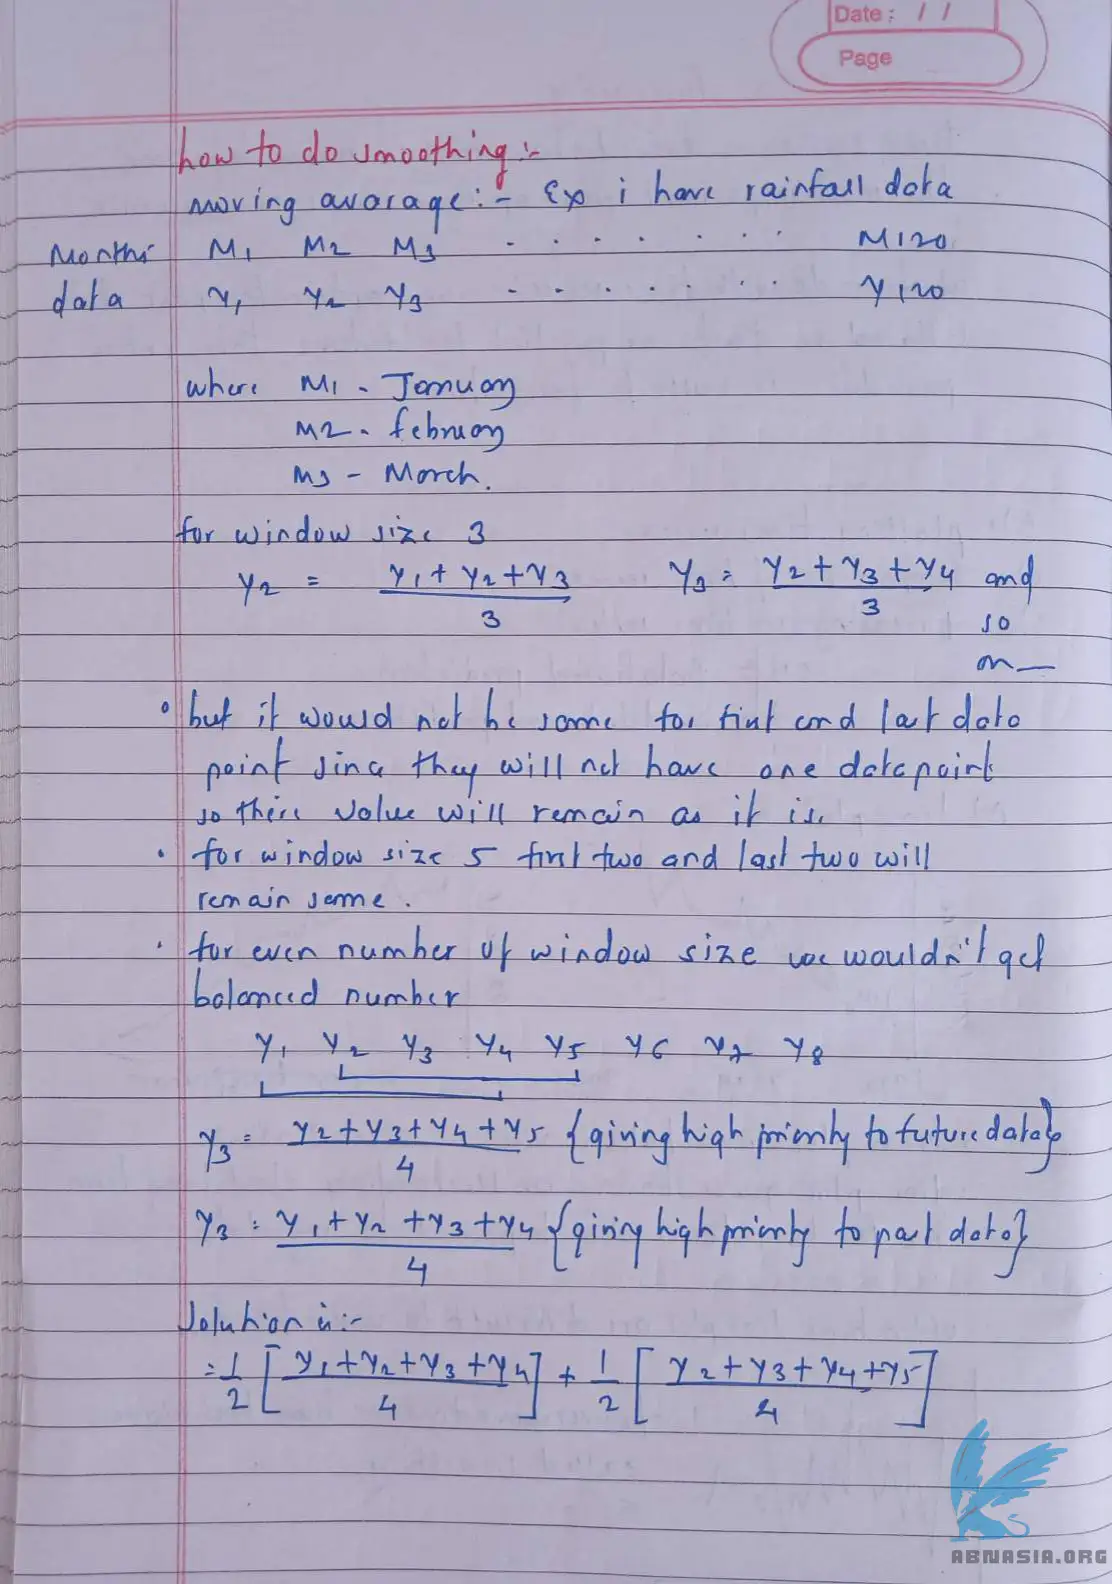 Date : / /
Page
how to do smoothing :-
moving avarage :- Ex i have rainfall data
Months M1 M2 M3 . . . . . . . . M120
data Y1 Y2 Y3 . . . . . . . . Y120
where M1 - January
M2 - february
M3 - March.
for window size 3
Y2 = Y1 + Y2 + Y3 / 3 Y3 = Y2 + Y3 + Y4 / 3 and
so
on —
• but it would not be same for first and last data
point since they will not have one datapoint
so there value will remain as it is.
• for window size 5 first two and last two will
remain same.
• for even number of window size we wouldn't get
balanced number
Y1 Y2 Y3 Y4 Y5 Y6 Y7 Y8
Y3 = Y2 + Y3 + Y4 + Y5 / 4 {giving high priority to future data}
Y3 = Y1 + Y2 + Y3 + Y4 / 4 {giving high priority to past data}
Solution is :-
= 1/2 [Y1 + Y2 + Y3 + Y4 / 4] + 1/2 [Y2 + Y3 + Y4 + Y5 / 4]
ABNASIA.ORG